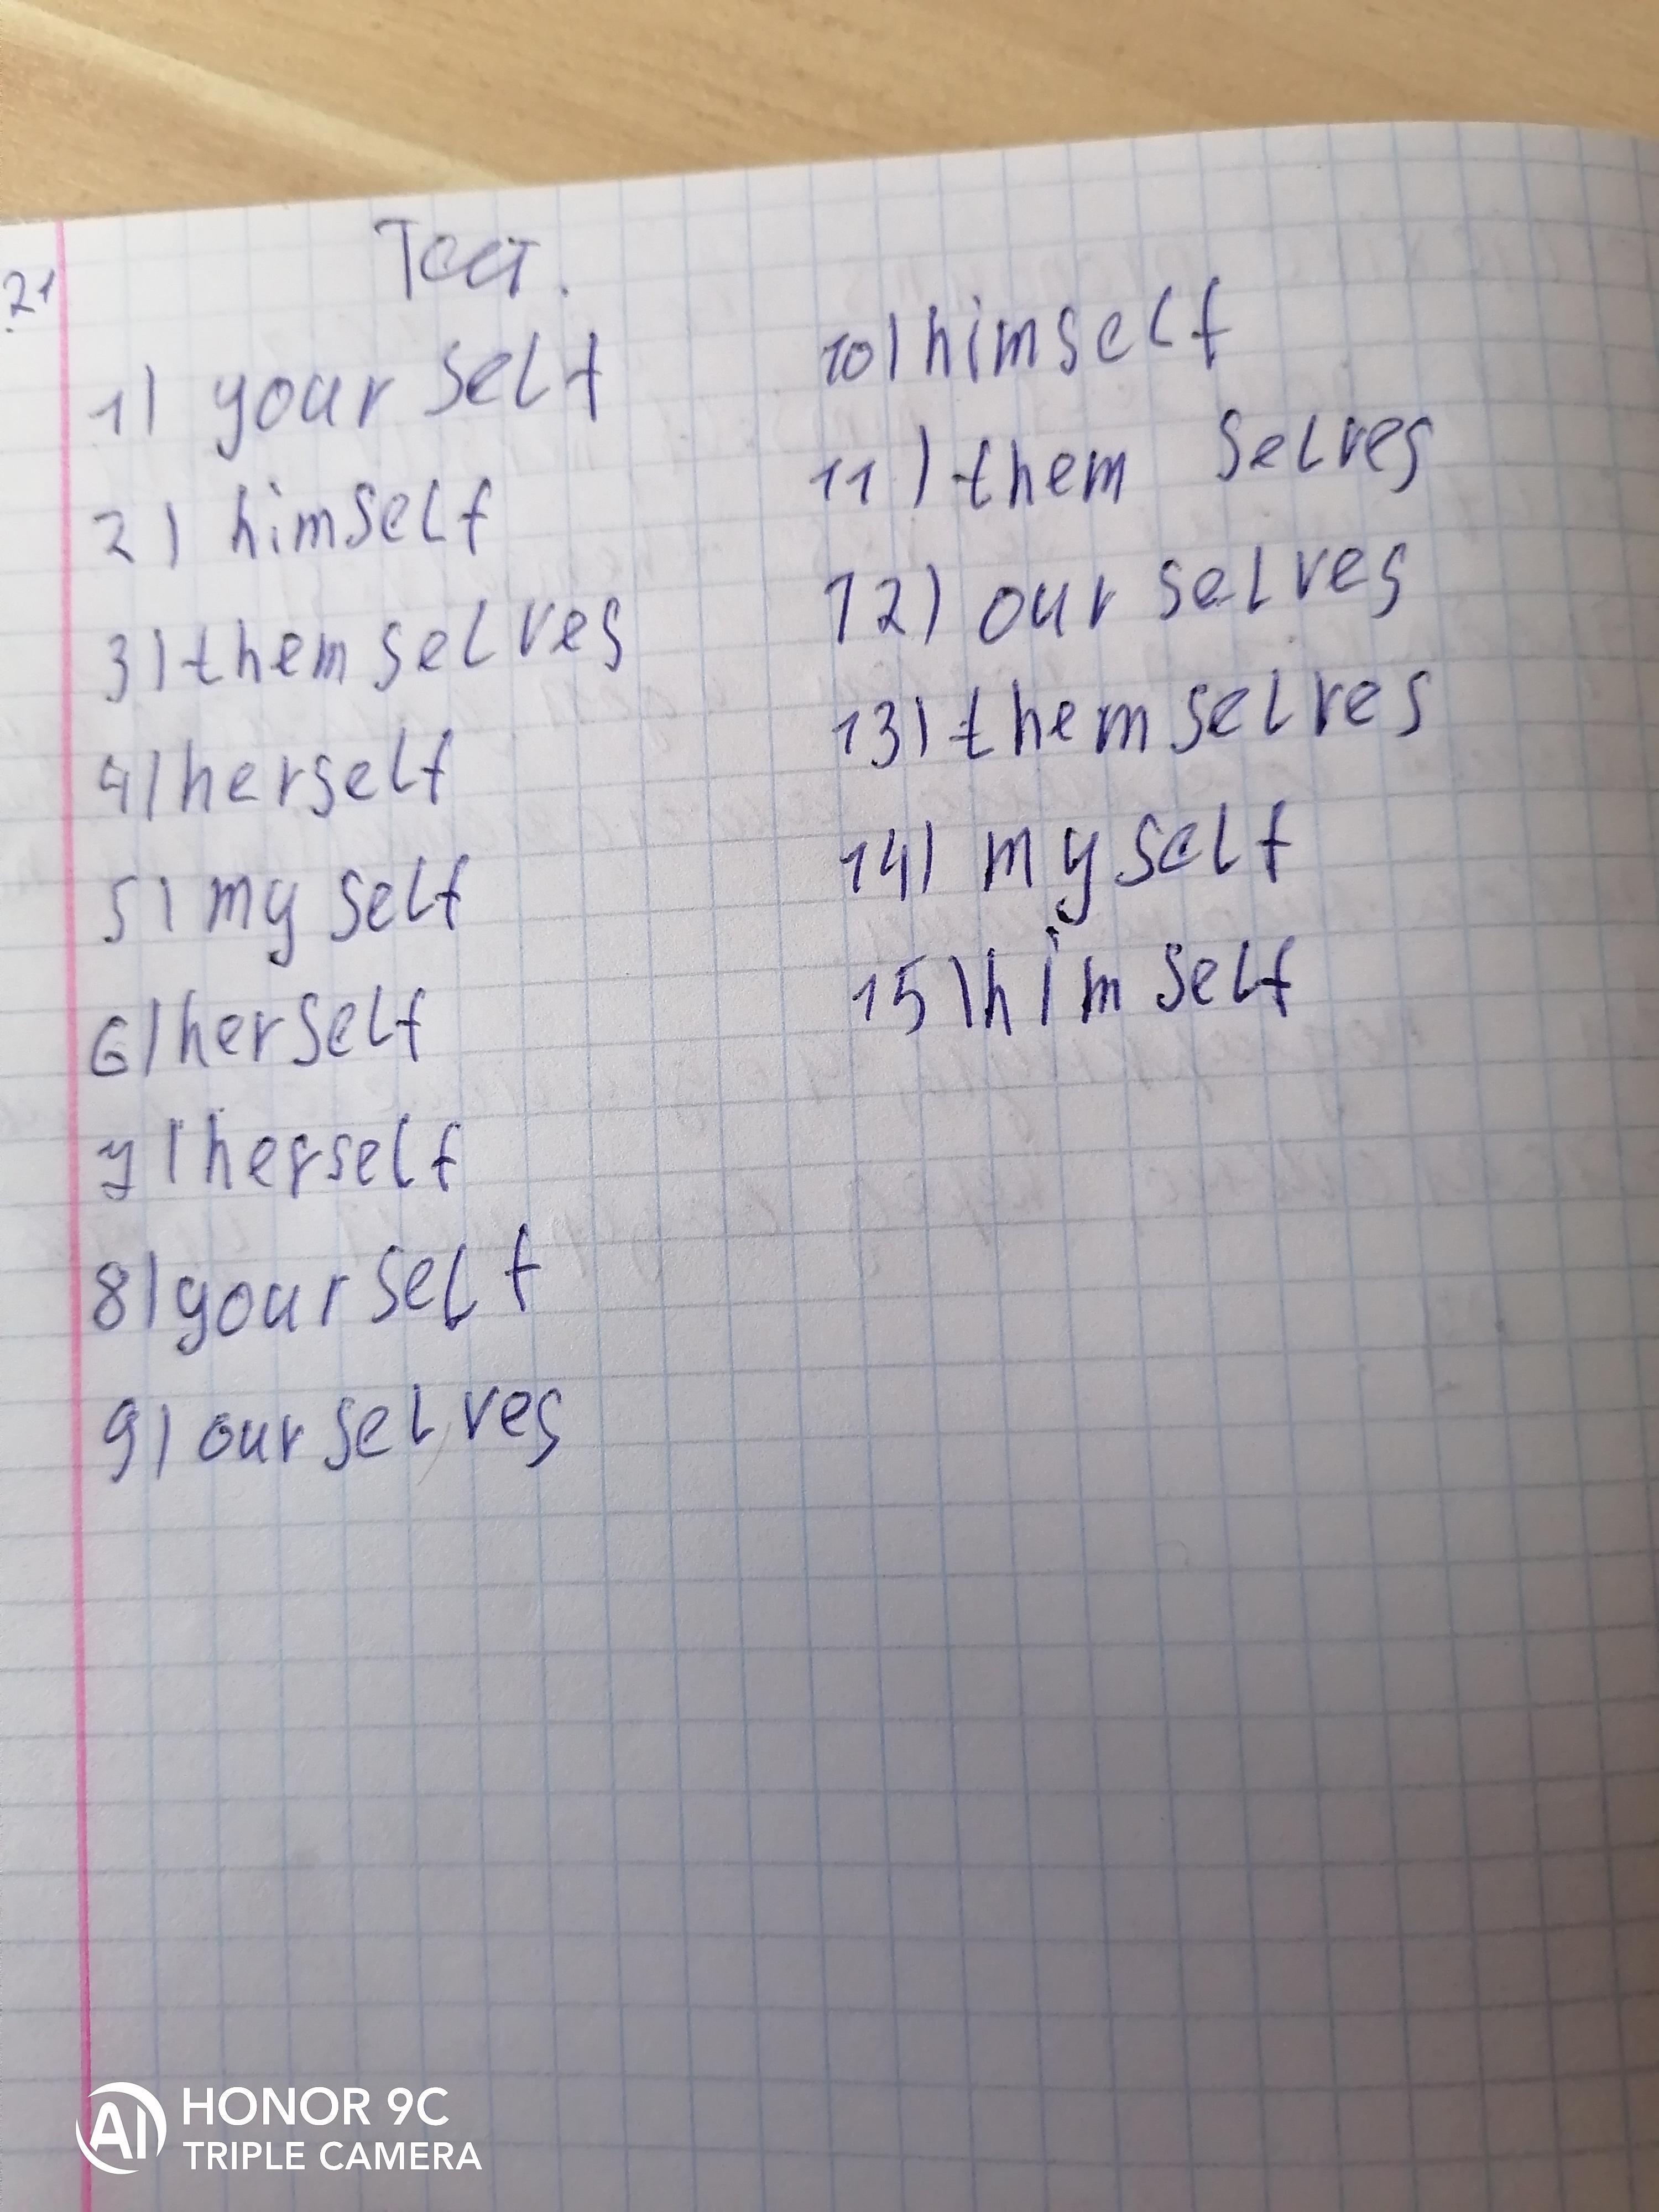 .21
Тест.
1) your self
2) himself
3) them selves
4) herself
5) my self
6) herself
7) herself
8) your self
9) our selves
10) himself
11) them selves
12) our selves
13) them selves
14) my self
15) him self
HONOR 9C
TRIPLE CAMERA